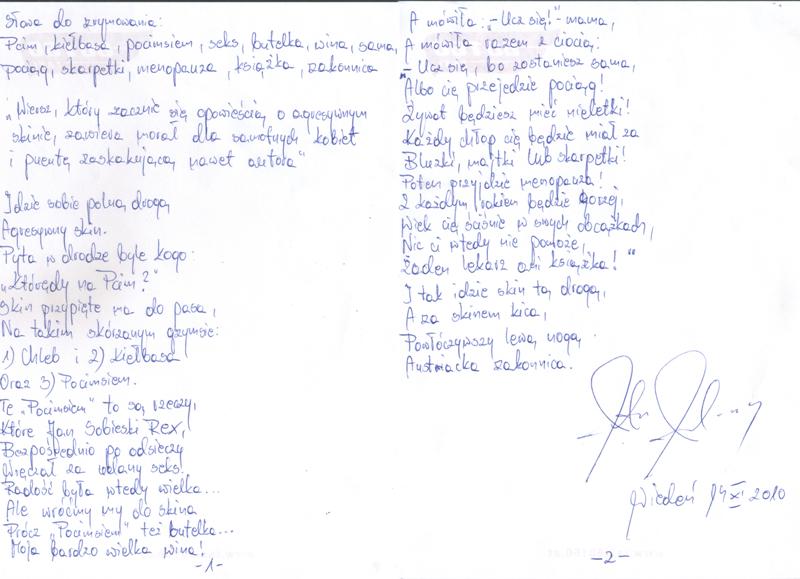 Słowa do zrymowania:
Pcim, kiełbasa, pocimsiem, seks, butelka, wina, sama,
pociąg, skarpetki, menopauza, książka, zakonnica
"Wiersz, który zacznie się opowieścią o agresywnym
skinie, zawiera morał dla samotnych kobiet
i puentę zaskakującą nawet autora"
Idzie sobie polną drogą
Agresywny skin.
Pyta w drodze byle kogo:
"Którędy na Pcim?"
Skin przypięte ma do pasa,
Na takim skórzanym gzymsie:
1) Chleb i 2) Kiełbasa
Oraz 3) Pocimsiem.
Te "Pocimsiem" to są rzeczy,
Które Jan Sobieski Rex,
Bezpośrednio po odsieczy
Wręczał za udany seks.
Radość była wtedy wielka...
Ale wróćmy my do skina
Prócz "Pocimsiem" też butelka...
Moja bardzo wielka wina!
-1-
A mówiła: "-Ucz się!" - mama,
A mówiła razem z ciocią:
- Ucz się, bo zostaniesz sama,
"Albo cię przejedzie pociąg!
Żywot będziesz mieć nieletki!
Każdy chłop cię będzie miał za
Bluzki, majtki lub skarpetki!
Potem przyjdzie menopauza!
Z każdym rokiem będzie gorzej,
Wiek cię ściśnie w swych obcążkach,
Nic ci wtedy nie pomoże,
Żaden lekarz ani książka!"
I tak idzie skin tą drogą,
A za skinem kica,
Powłóczywszy lewą nogą
Austriacka zakonnica.
Wiedeń 14 XI 2010
-2-